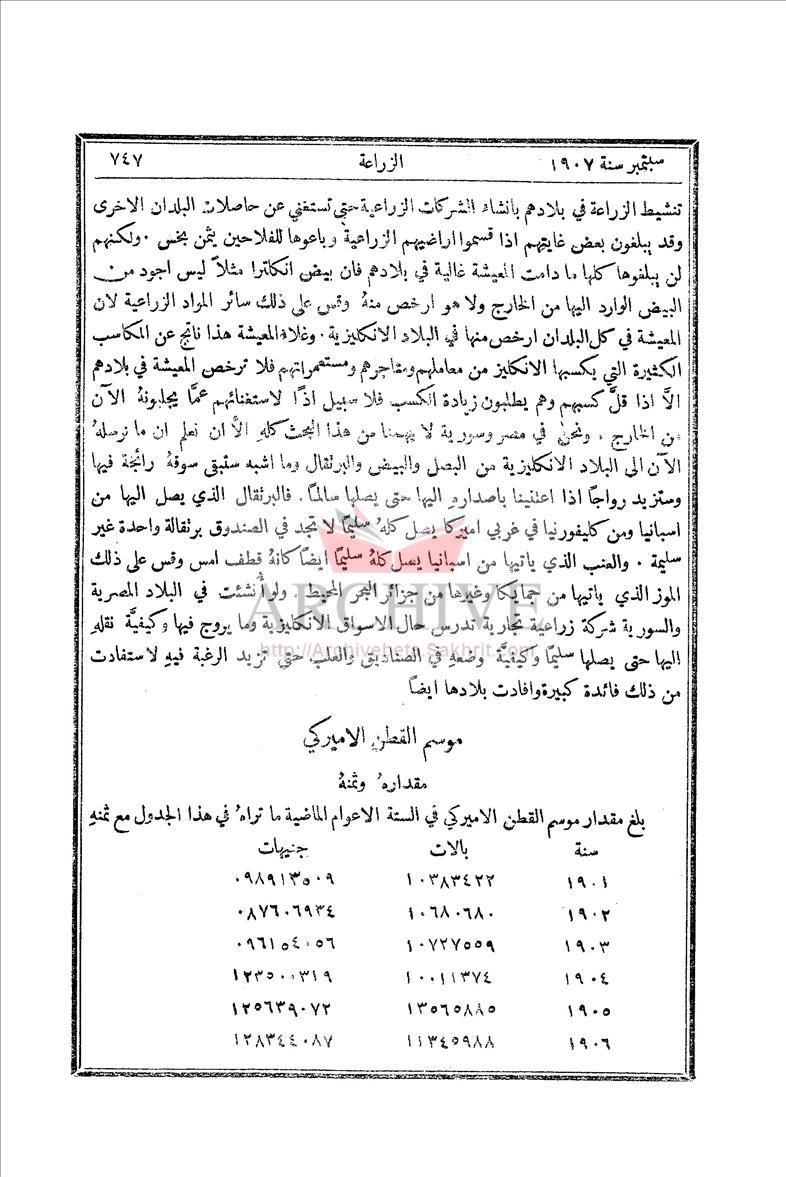 سبتمبر سنة ١٩٠٧ الزراعة ٧٤٧
تنشيط الزراعة في بلادهم بانشاء الشركات الزراعية حتى تستغني عن حاصلات البلدان الاخرى
وقد يبلغون بعض غايتهم اذا قسموا اراضيهم الزراعية وباعوها للفلاحين بثمن بخس . ولكنهم
لن يبلغوها كلها ما دامت المعيشة غالية في بلادهم فان بيض انكلترا مثلاً ليس اجود من
البيض الوارد اليها من الخارج ولا هو ارخص منهُ وقس على ذلك سائر المواد الزراعية لان
المعيشة في كل البلدان ارخص منها في البلاد الانكليزية . وغلاء المعيشة هذا ناتج عن المكاسب
الكثيرة التي يكسبها الانكليز من معاملهم ومتاجرهم ومستعمراتهم فلا ترخص المعيشة في بلادهم
الاَّ اذا قلَّ كسبهم وهم يطلبون زيادة الكسب فلا سبيل اذًا لاستغنائهم عمَّا يجلبونهُ الآن
من الخارج . ونحن في مصر وسورية لا يهمنا من هذا البحث كلهِ الاَّ ان نعلم ان ما نرسلهُ
الآن الى البلاد الانكليزية من البصل والبيض والبرتقال وما اشبه ستبقى سوقهُ رائجة فيها
وستزيد رواجاً اذا اعتنينا باصدارهِ اليها حتى يصلها سالماً . فالبرتقال الذي يصل اليها من
اسبانيا ومن كليفورنيا في غربي اميركا يصل كلهُ سليماً لا تجد في الصندوق برتقالة واحدة غير
سليمة . والعنب الذي ياتيها من اسبانيا يصل كلهُ سليماً ايضاً كانهُ قطف امس وقس على ذلك
الموز الذي ياتيها من جمايكا وغيرها من جزائر البحر المحيط . ولو أُنشئت في البلاد المصرية
والسورية شركة زراعية تجارية تدرس حال الاسواق الانكليزية وما يروج فيها وكيفيَّة نقلهِ
اليها حتى يصلها سليماً وكيفيَّة وضعهِ في الصناديق والعلب حتى تزيد الرغبة فيهِ لاستفادت
من ذلك فائدة كبيرة وافادت بلادها ايضاً
ARCHIVE
http://Archivebeta.Sakhrit.com
موسم القطن الاميركي
مقدارهُ وثمنهُ
بلغ مقدار موسم القطن الاميركي في الستة الاعوام الماضية ما تراهُ في هذا الجدول مع ثمنهِ
سنة بالات جنيهات
١٩٠١ ١٠٣٨٣٤٢٢ ٠٩٨٩١٣٥٠٩
١٩٠٢ ١٠٦٨٠٦٨٠ ٠٨٧٦٠٦٩٣٤
١٩٠٣ ١٠٧٢٧٥٥٩ ٠٩٦١٥٤٠٥٦
١٩٠٤ ١٠٠١١٣٧٤ ١٢٣٥٠٠٣١٩
١٩٠٥ ١٣٥٦٥٨٨٥ ١٢٥٦٣٩٠٧٢
١٩٠٦ ١١٣٤٥٩٨٨ ١٢٨٣٤٤٠٨٧